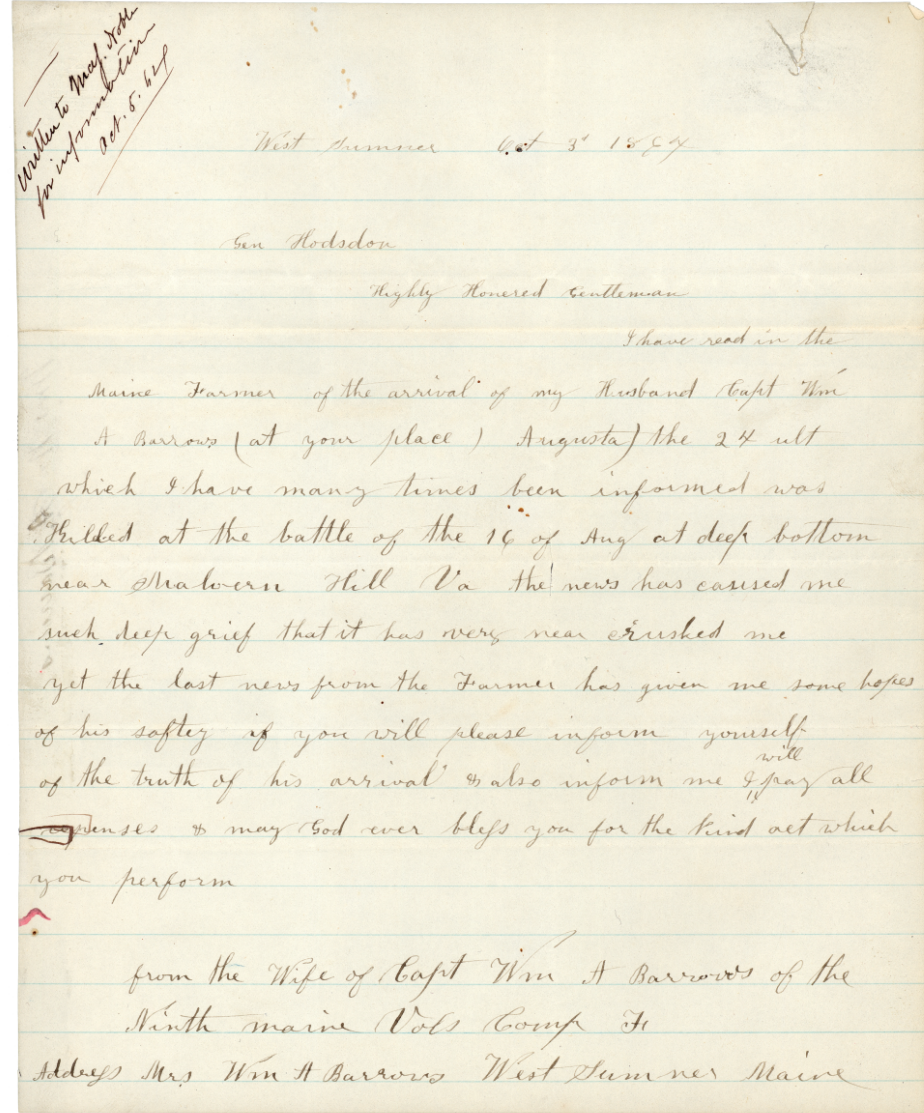 Written to Maj. Noble
for information
Oct. 5. 64
West Sumner Oct 3d 1864
Gen Hodsdon
Highly Honered Gentleman
I have read in the
Maine Farmer of the arrival of my Husband Capt Wm
A Barrows (at your place) Augusta) the 24 ult
which I have many times been informed was
Killed at the battle of the 16 of Aug at deep bottom
near Malvern Hill Va the news has caused me
such deep grief that it has very near crushed me
yet the last news from the Farmer has given me some hopes
of his saftey if you will please inform yourself
of the truth of his arrival & also inform me I will pay all
expenses & may God ever bless you for the kind act which
you perform
from the Wife of Capt Wm A Barrows of the
Ninth maine Vols Comp F
Address Mrs Wm A Barrows West Sumner Maine